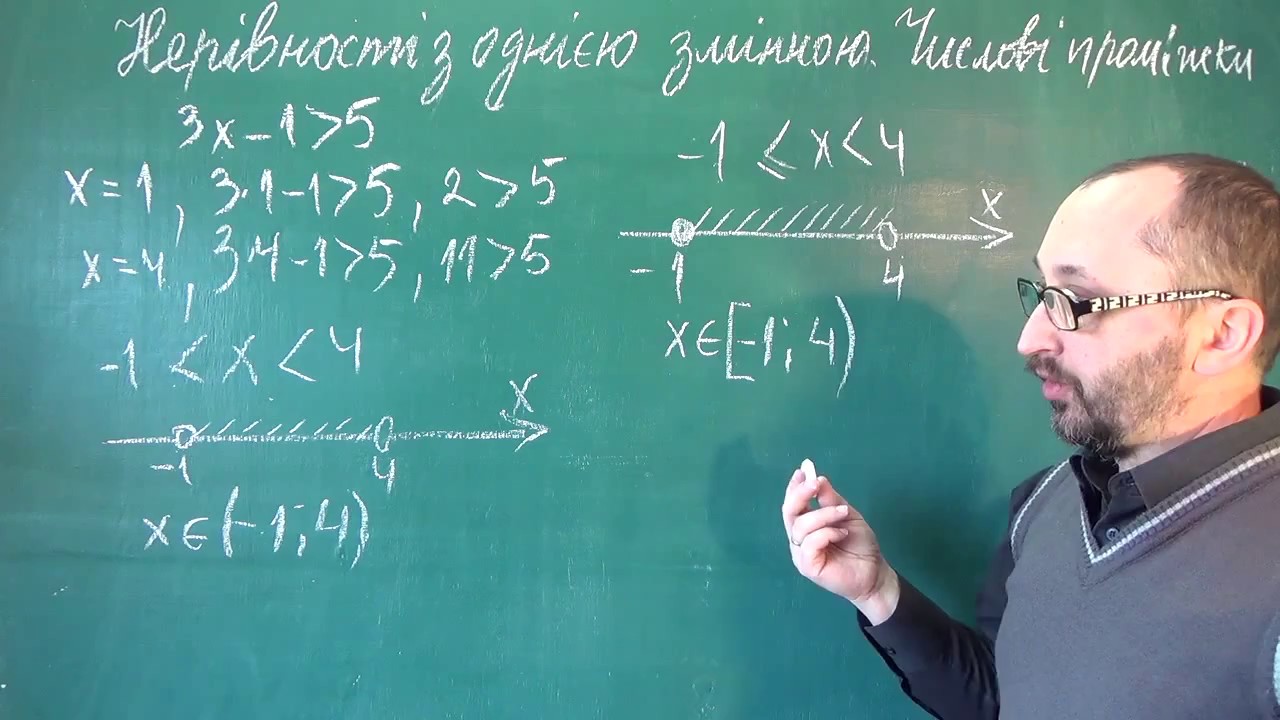 Нерівності з однією змінною. Числові проміжки
3x-1>5
x=1, 3·1-1>5, 2>5
x=4, 3·4-1>5, 11>5
-1<x<4
x
-1 4
x∈(-1;4)
-1≤x<4
x
-1 4
x∈[-1;4)